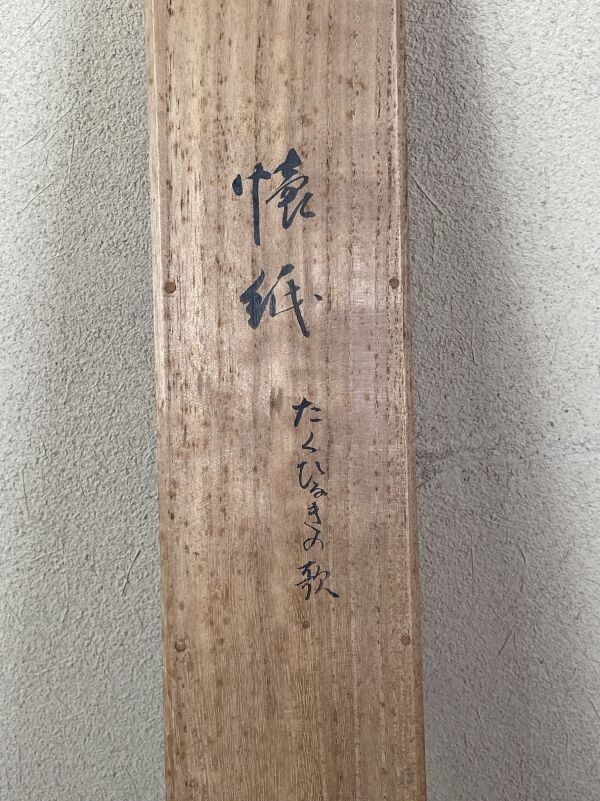 懐紙
たくひなきの歌